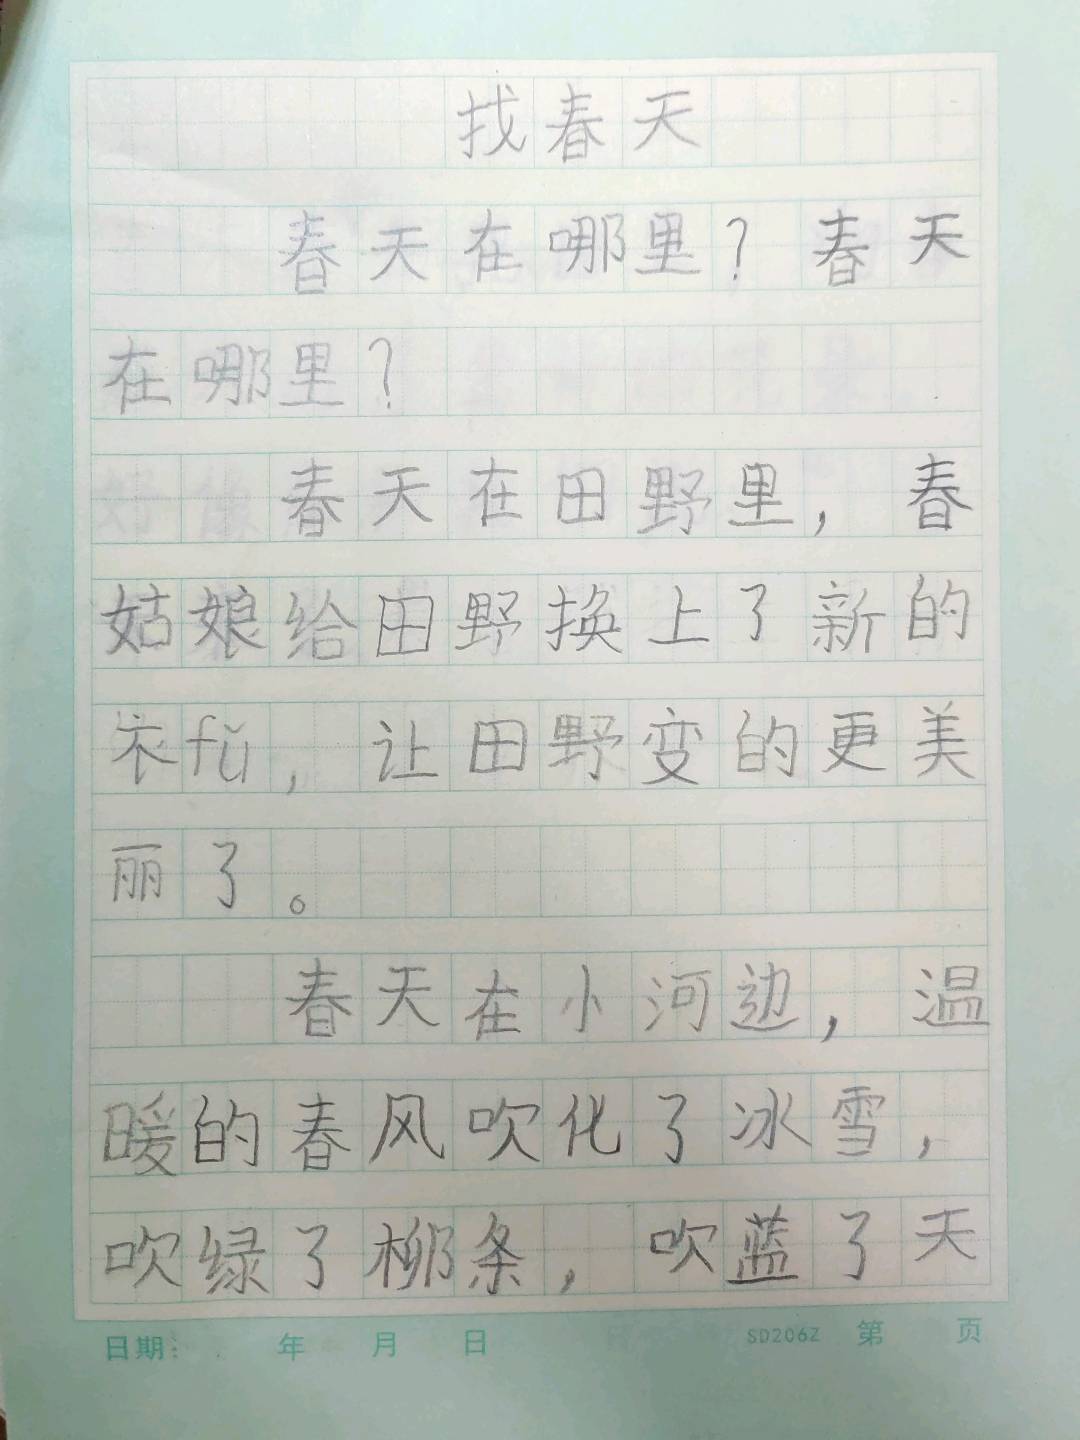 找春天
春天在哪里？春天
在哪里？
春天在田野里，春
姑娘给田野换上了新的
衣fǔ，让田野变的更美
丽了。
春天在小河边，温
暖的春风吹化了冰雪，
吹绿了柳条，吹蓝了天
日期： 年 月 日 SD206Z 第 页